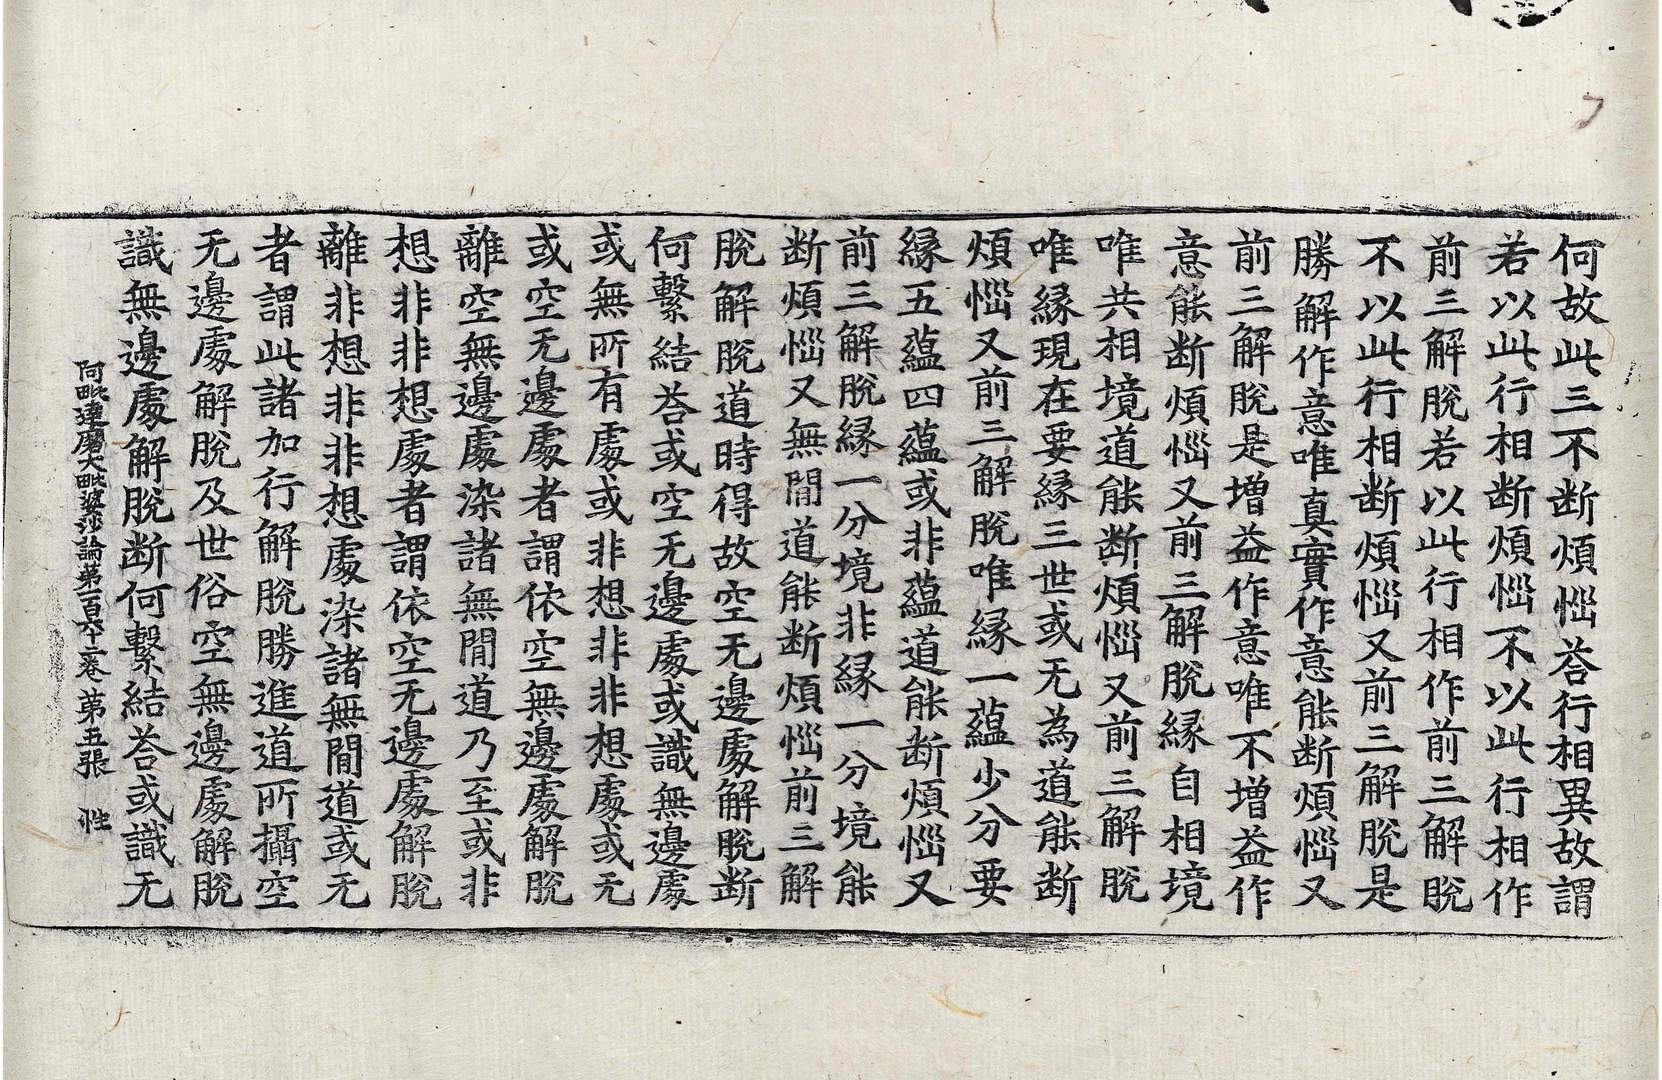 何故此三不断煩惱荅行相異故謂
若以此行相断煩惱不以此行相作
前三解脫若以此行相作前三解脫
不以此行相断煩惱又前三解脫是
勝解作意唯真實作意能断煩惱又
前三解脫是增益作意唯不增益作
意能断煩惱又前三解脫緣自相境
唯共相境道能断煩惱又前三解脫
唯緣現在要緣三世或无為道能断
煩惱又前三解脫唯緣一蘊少分要
緣五蘊四蘊或非蘊道能断煩惱又
前三解脫緣一分境非緣一分境能
断煩惱又無閒道能断煩惱前三解
脫解脫道時得故空无邊處解脫断
何繫結荅或空无邊處或識無邊處
或無所有處或非想非非想處或无
或空无邊處者謂依空無邊處解脫
離空無邊處染諸無閒道乃至或非
想非非想處者謂依空无邊處解脫
離非想非非想處染諸無閒道或无
者謂此諸加行解脫勝進道所攝空
无邊處解脫及世俗空無邊處解脫
識無邊處解脫断何繫結荅或識无
阿毗達磨大毗婆沙論第一百六十二卷 第五張 性